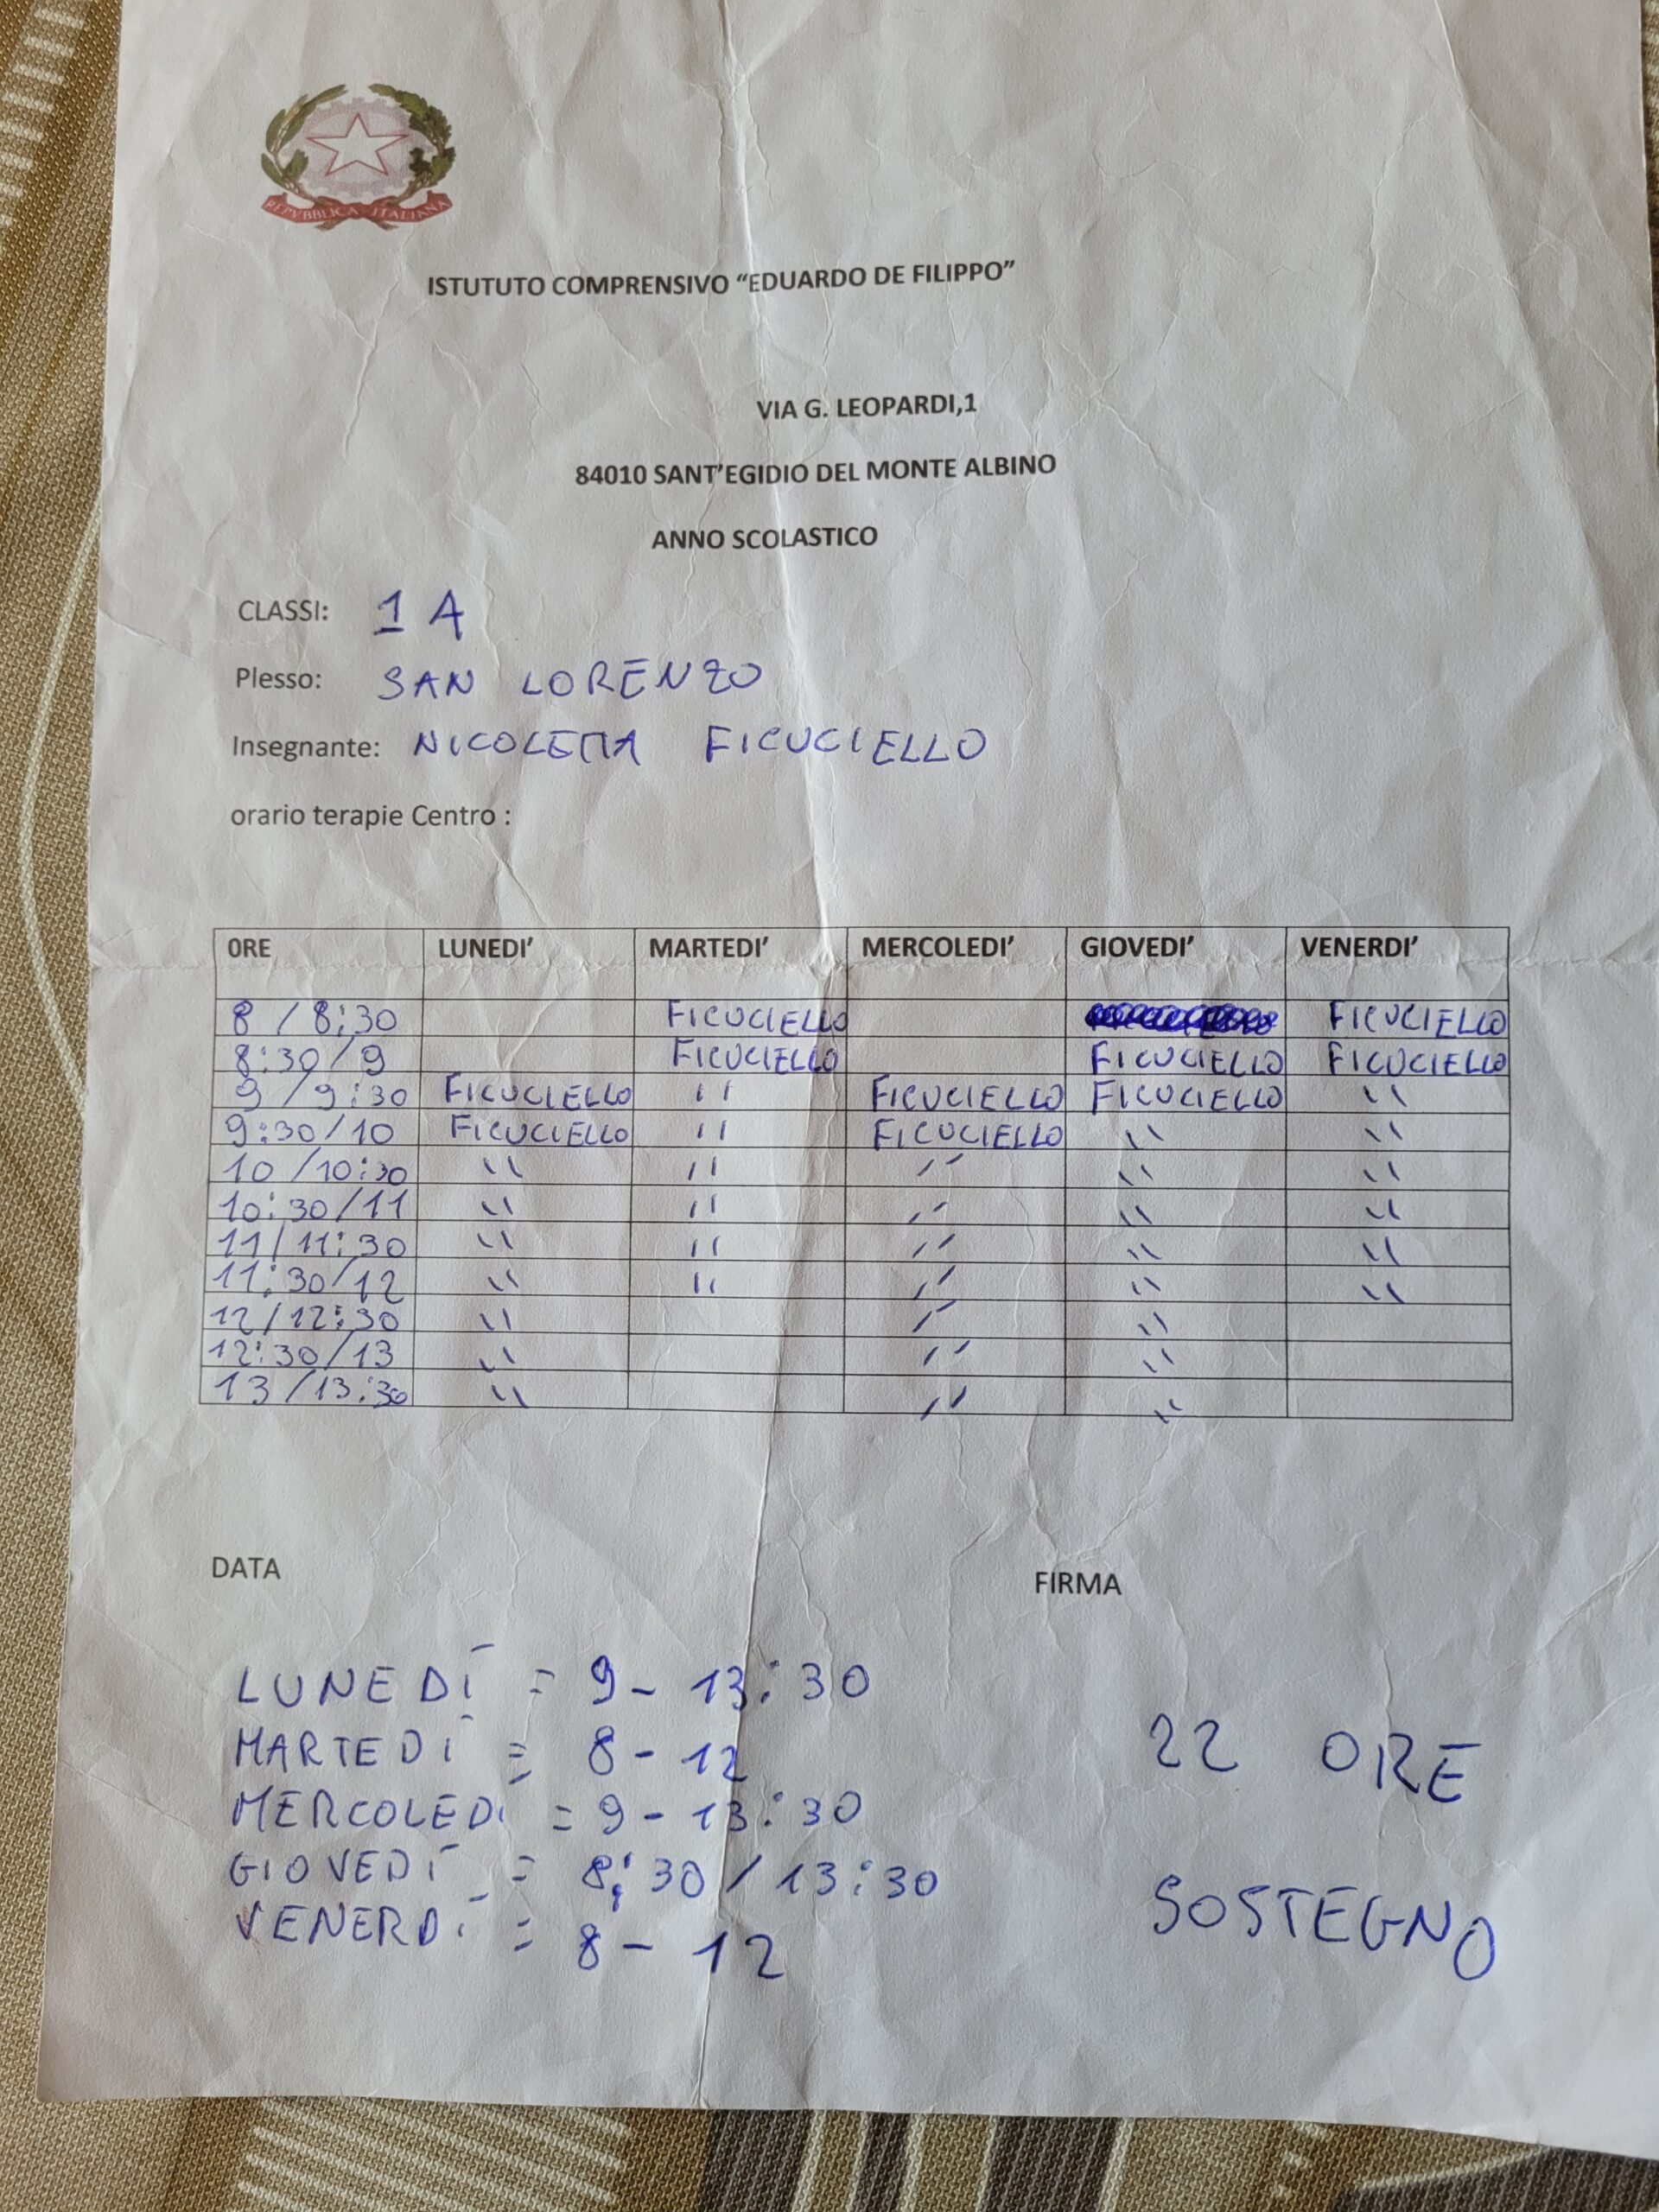 REPVBBLICA ITALIANA
ISTUTUTO COMPRENSIVO “EDUARDO DE FILIPPO”
VIA G. LEOPARDI,1
84010 SANT’EGIDIO DEL MONTE ALBINO
ANNO SCOLASTICO
CLASSI: 1 A
Plesso: SAN LORENZO
Insegnante: NICOLETTA FICUCIELLO
orario terapie Centro :
ORE LUNEDI’ MARTEDI’ MERCOLEDI’ GIOVEDI’ VENERDI’
8 / 8:30 FICUCIELLO FICUCIELLO
8:30/9 FICUCIELLO FICUCIELLO FICUCIELLO
9 / 9:30 FICUCIELLO " FICUCIELLO FICUCIELLO "
9:30/10 FICUCIELLO " FICUCIELLO " "
10 /10:30 " " " " "
10:30/11 " " " " "
11/11:30 " " " " "
11:30/12 " " " " "
12/12:30 " " "
12:30/13 " " "
13/13:30 " " "
DATA FIRMA
LUNEDÌ = 9- 13:30
MARTEDÌ = 8- 12
MERCOLEDÌ = 9-13:30
GIOVEDÌ = 8:30/13:30
VENERDÌ = 8-12
22 ORE
SOSTEGNO